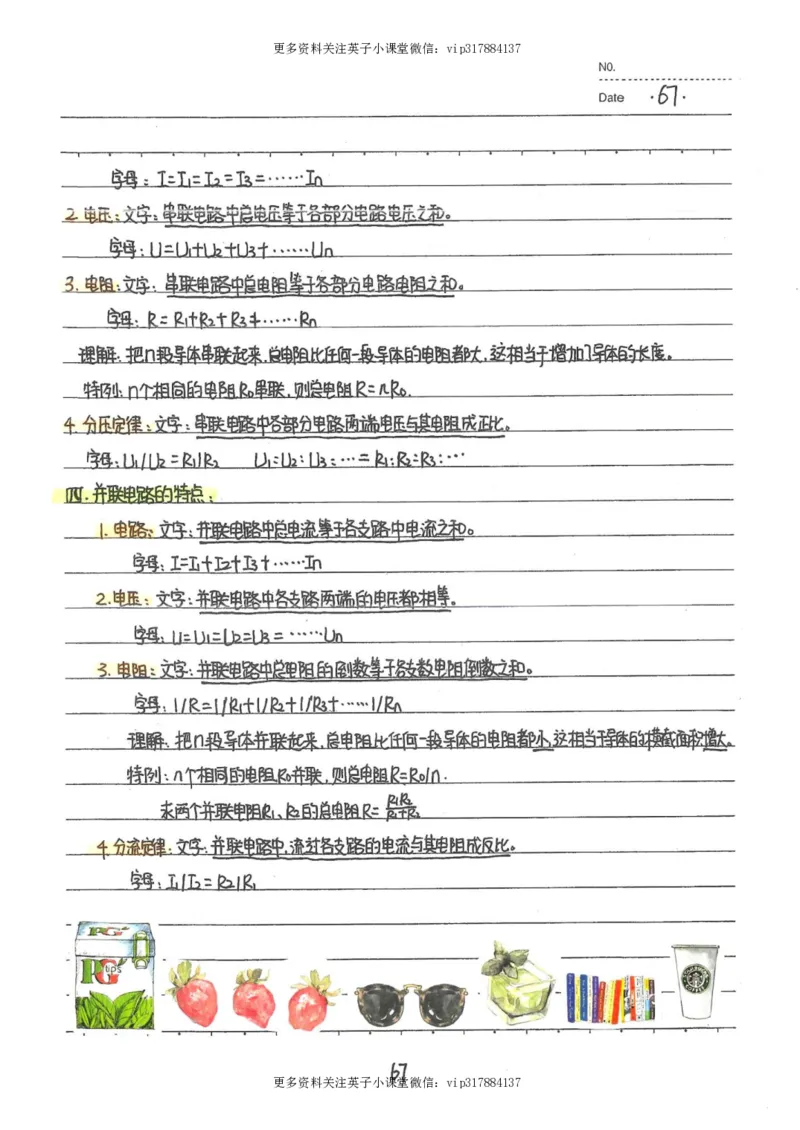 更多资料关注英子小课堂微信：vip317884137
NO.
Date ·67·
字母：I=I₁=I₂=I₃=……In
2.电压：文字：串联电路中总电压等于各部分电路电压之和。
字母：U=U₁+U₂+U₃+……Un
3.电阻：文字：串联电路中总电阻等于各部分电路电阻之和。
字母：R=R₁+R₂+R₃+……Rn
理解：把n段导体串联起来，总电阻比任何一段导体的电阻都大，这相当于增加了导体的长度。
特例：n个相同的电阻R₀串联，则总电阻R=nR₀.
4.分压定律：文字：串联电路中各部分电路两端电压与其电阻成正比。
字母：U₁/U₂=R₁/R₂ U₁:U₂:U₃:…=R₁:R₂:R₃:…
四.并联电路的特点：
1.电路：文字：并联电路中总电流等于各支路中电流之和。
字母：I=I₁+I₂+I₃+……In
2.电压：文字：并联电路中各支路两端的电压都相等。
字母：U=U₁=U₂=U₃=……Un
3.电阻：文字：并联电路中总电阻的倒数等于各支数电阻倒数之和。
字母：1/R=1/R₁+1/R₂+1/R₃+……1/Rn
理解：把n段导体并联起来，总电阻比任何一段导体的电阻都小，这相当于导体的横截面积增大。
特例：n个相同的电阻R₀并联，则总电阻R=R₀/n.
求两个并联电阻R₁、R₂的总电阻R=R₁R₂/R₁+R₂
4.分流定律：文字：并联电路中，流过各支路的电流与其电阻成反比。
字母：I₁/I₂=R₂/R₁
PG
PG tips
67
更多资料关注英子小课堂微信：vip317884137